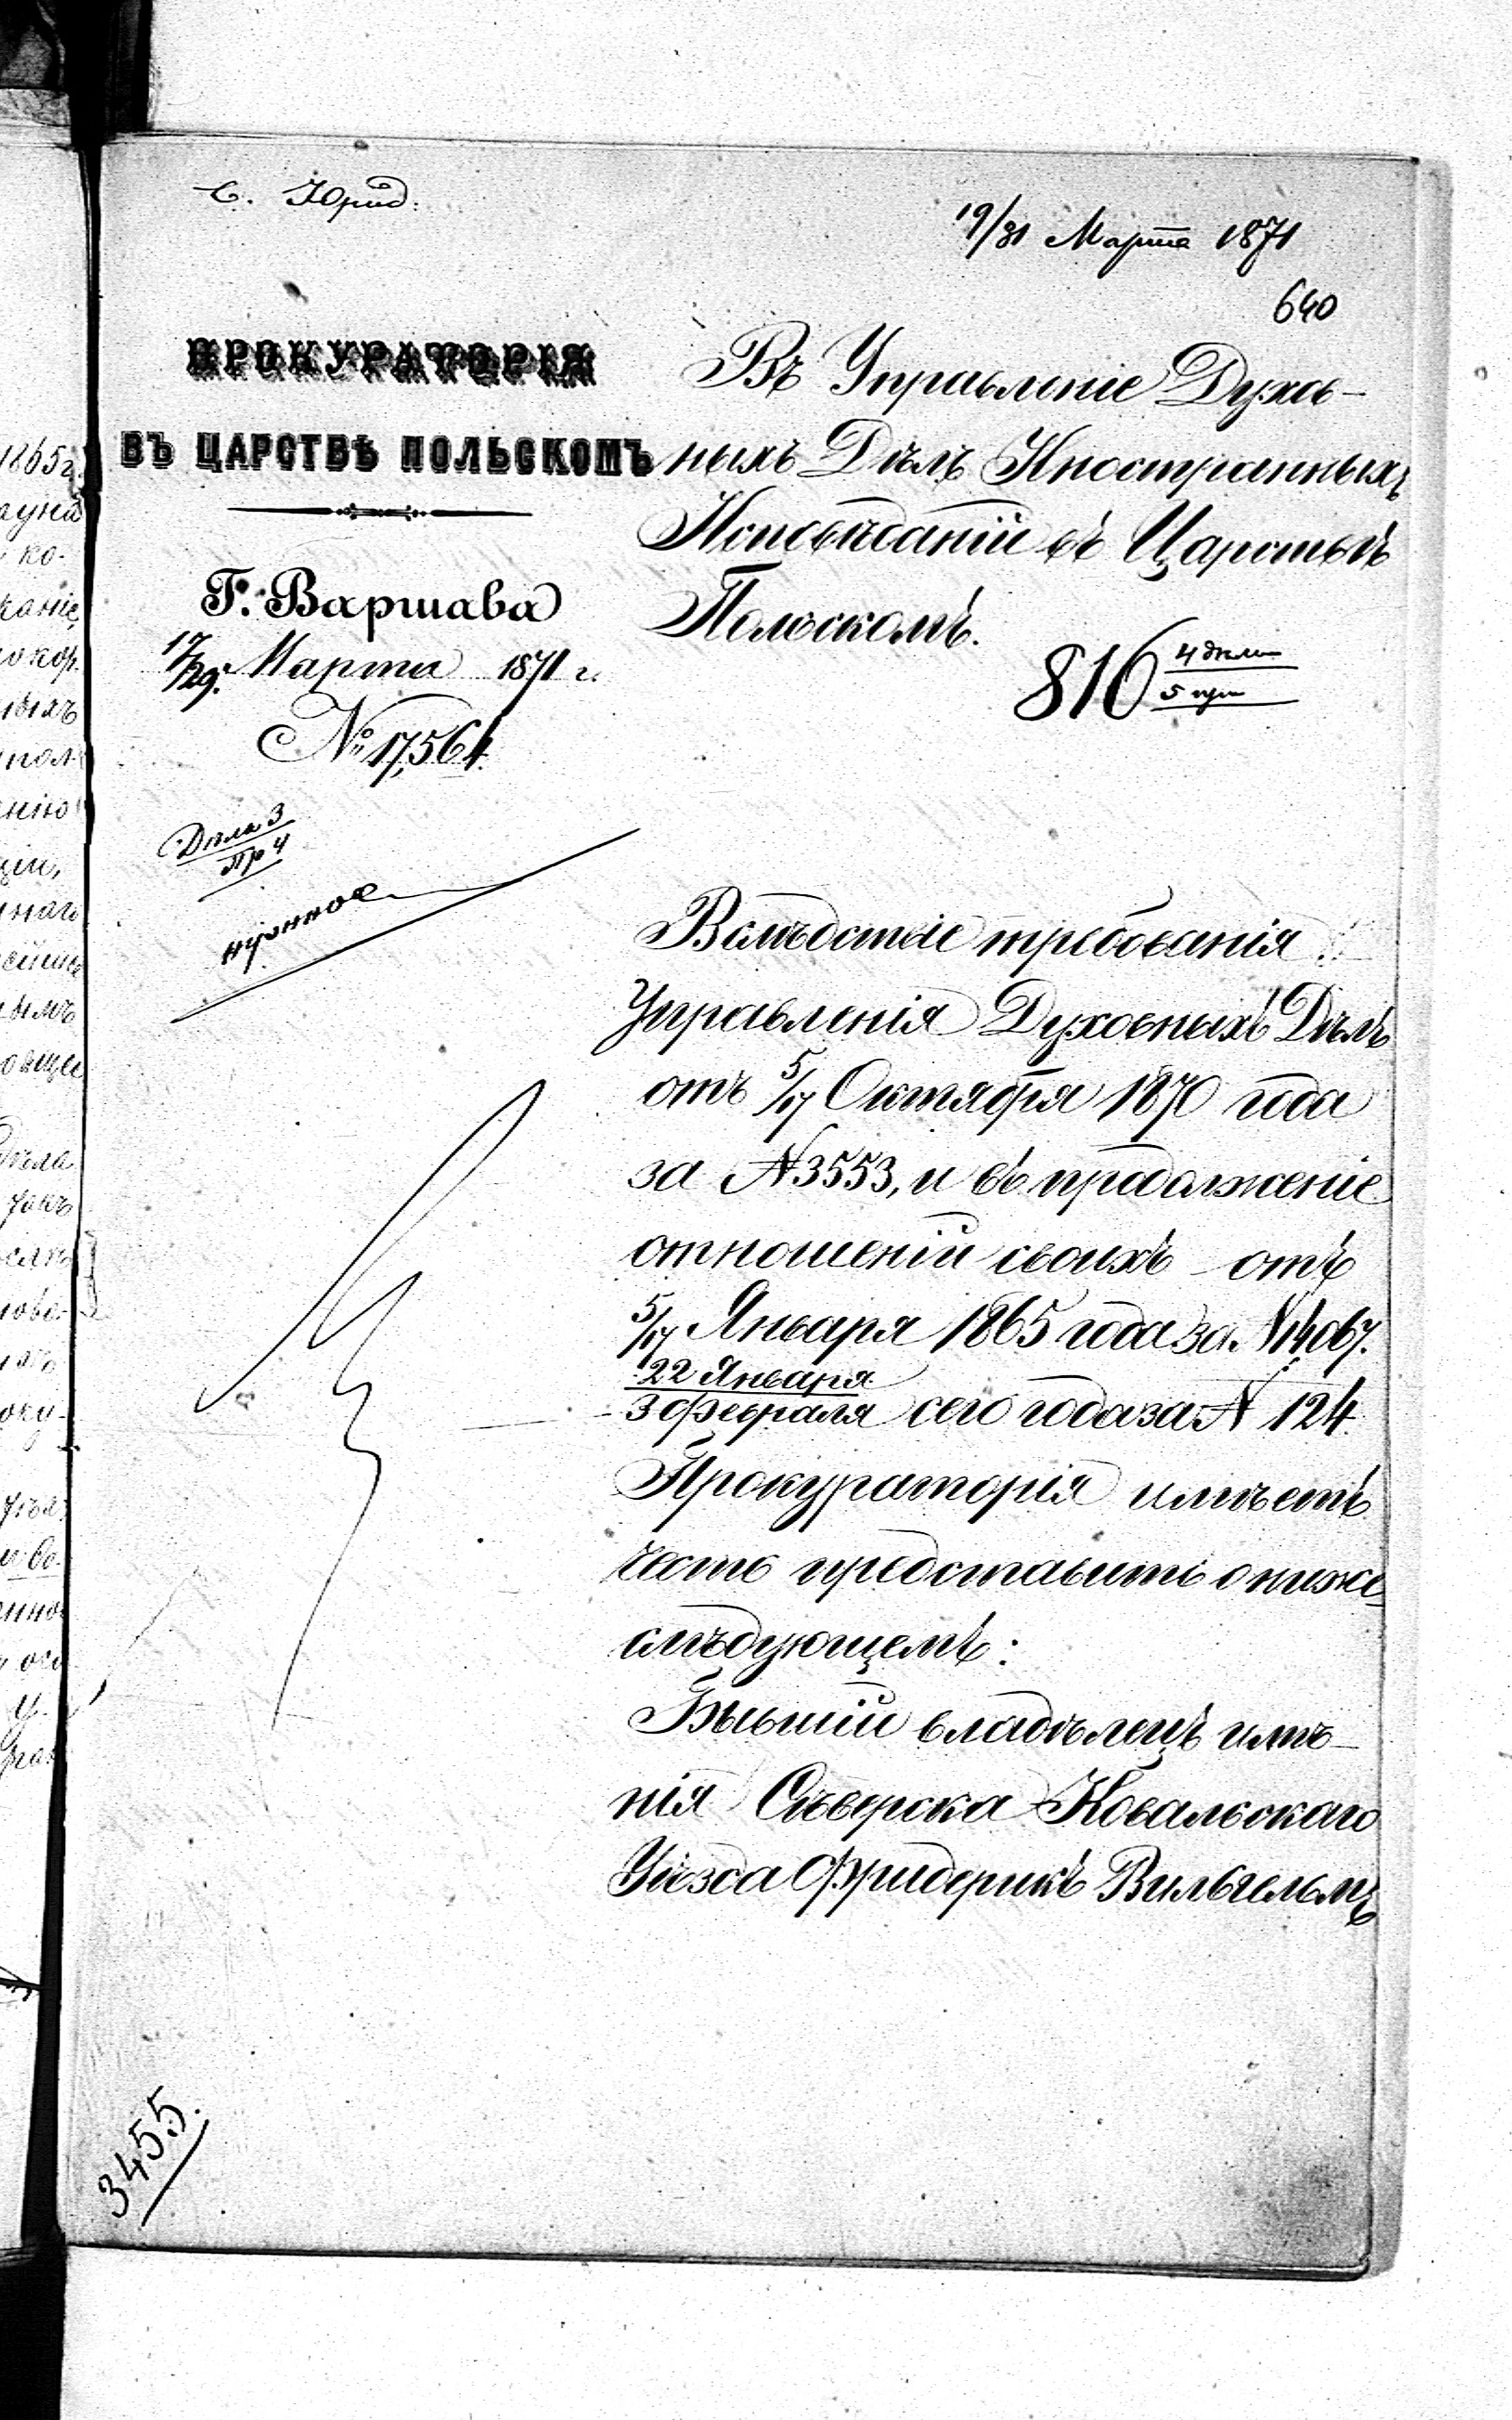 С. Юрид:
19/31 Марта 1871
640
ПРОКУРАТОРІЯ
ВЪ ЦАРСТВѢ ПОЛЬСКОМЪ
Г. Варшава
17/29. Марта 1871 г.
№ 17,564.
Дѣла 3
пр 4
нужное
Въ Управленіе Духов-
ныхъ Дѣлъ Иностранныхъ
Исповѣданій въ Царствѣ
Польскомъ.
816
Вслѣдствіе требованія
Управленія Духовныхъ Дѣлъ
отъ 5/17 Октября 1870 года
за N 3553, и въ продолженіе
отношеній своихъ отъ
5/17 Января 1865 года за N 14067.
22 Января
3 Февраля сего года за N 124
Прокураторія имѣетъ
честь представить о ниже
слѣдующемъ:
Бывшій владѣлецъ имѣ-
нія Сѣверска Ковальскаго
Уѣзда Фридерикъ Вильгельмъ
3455.
1865 г.